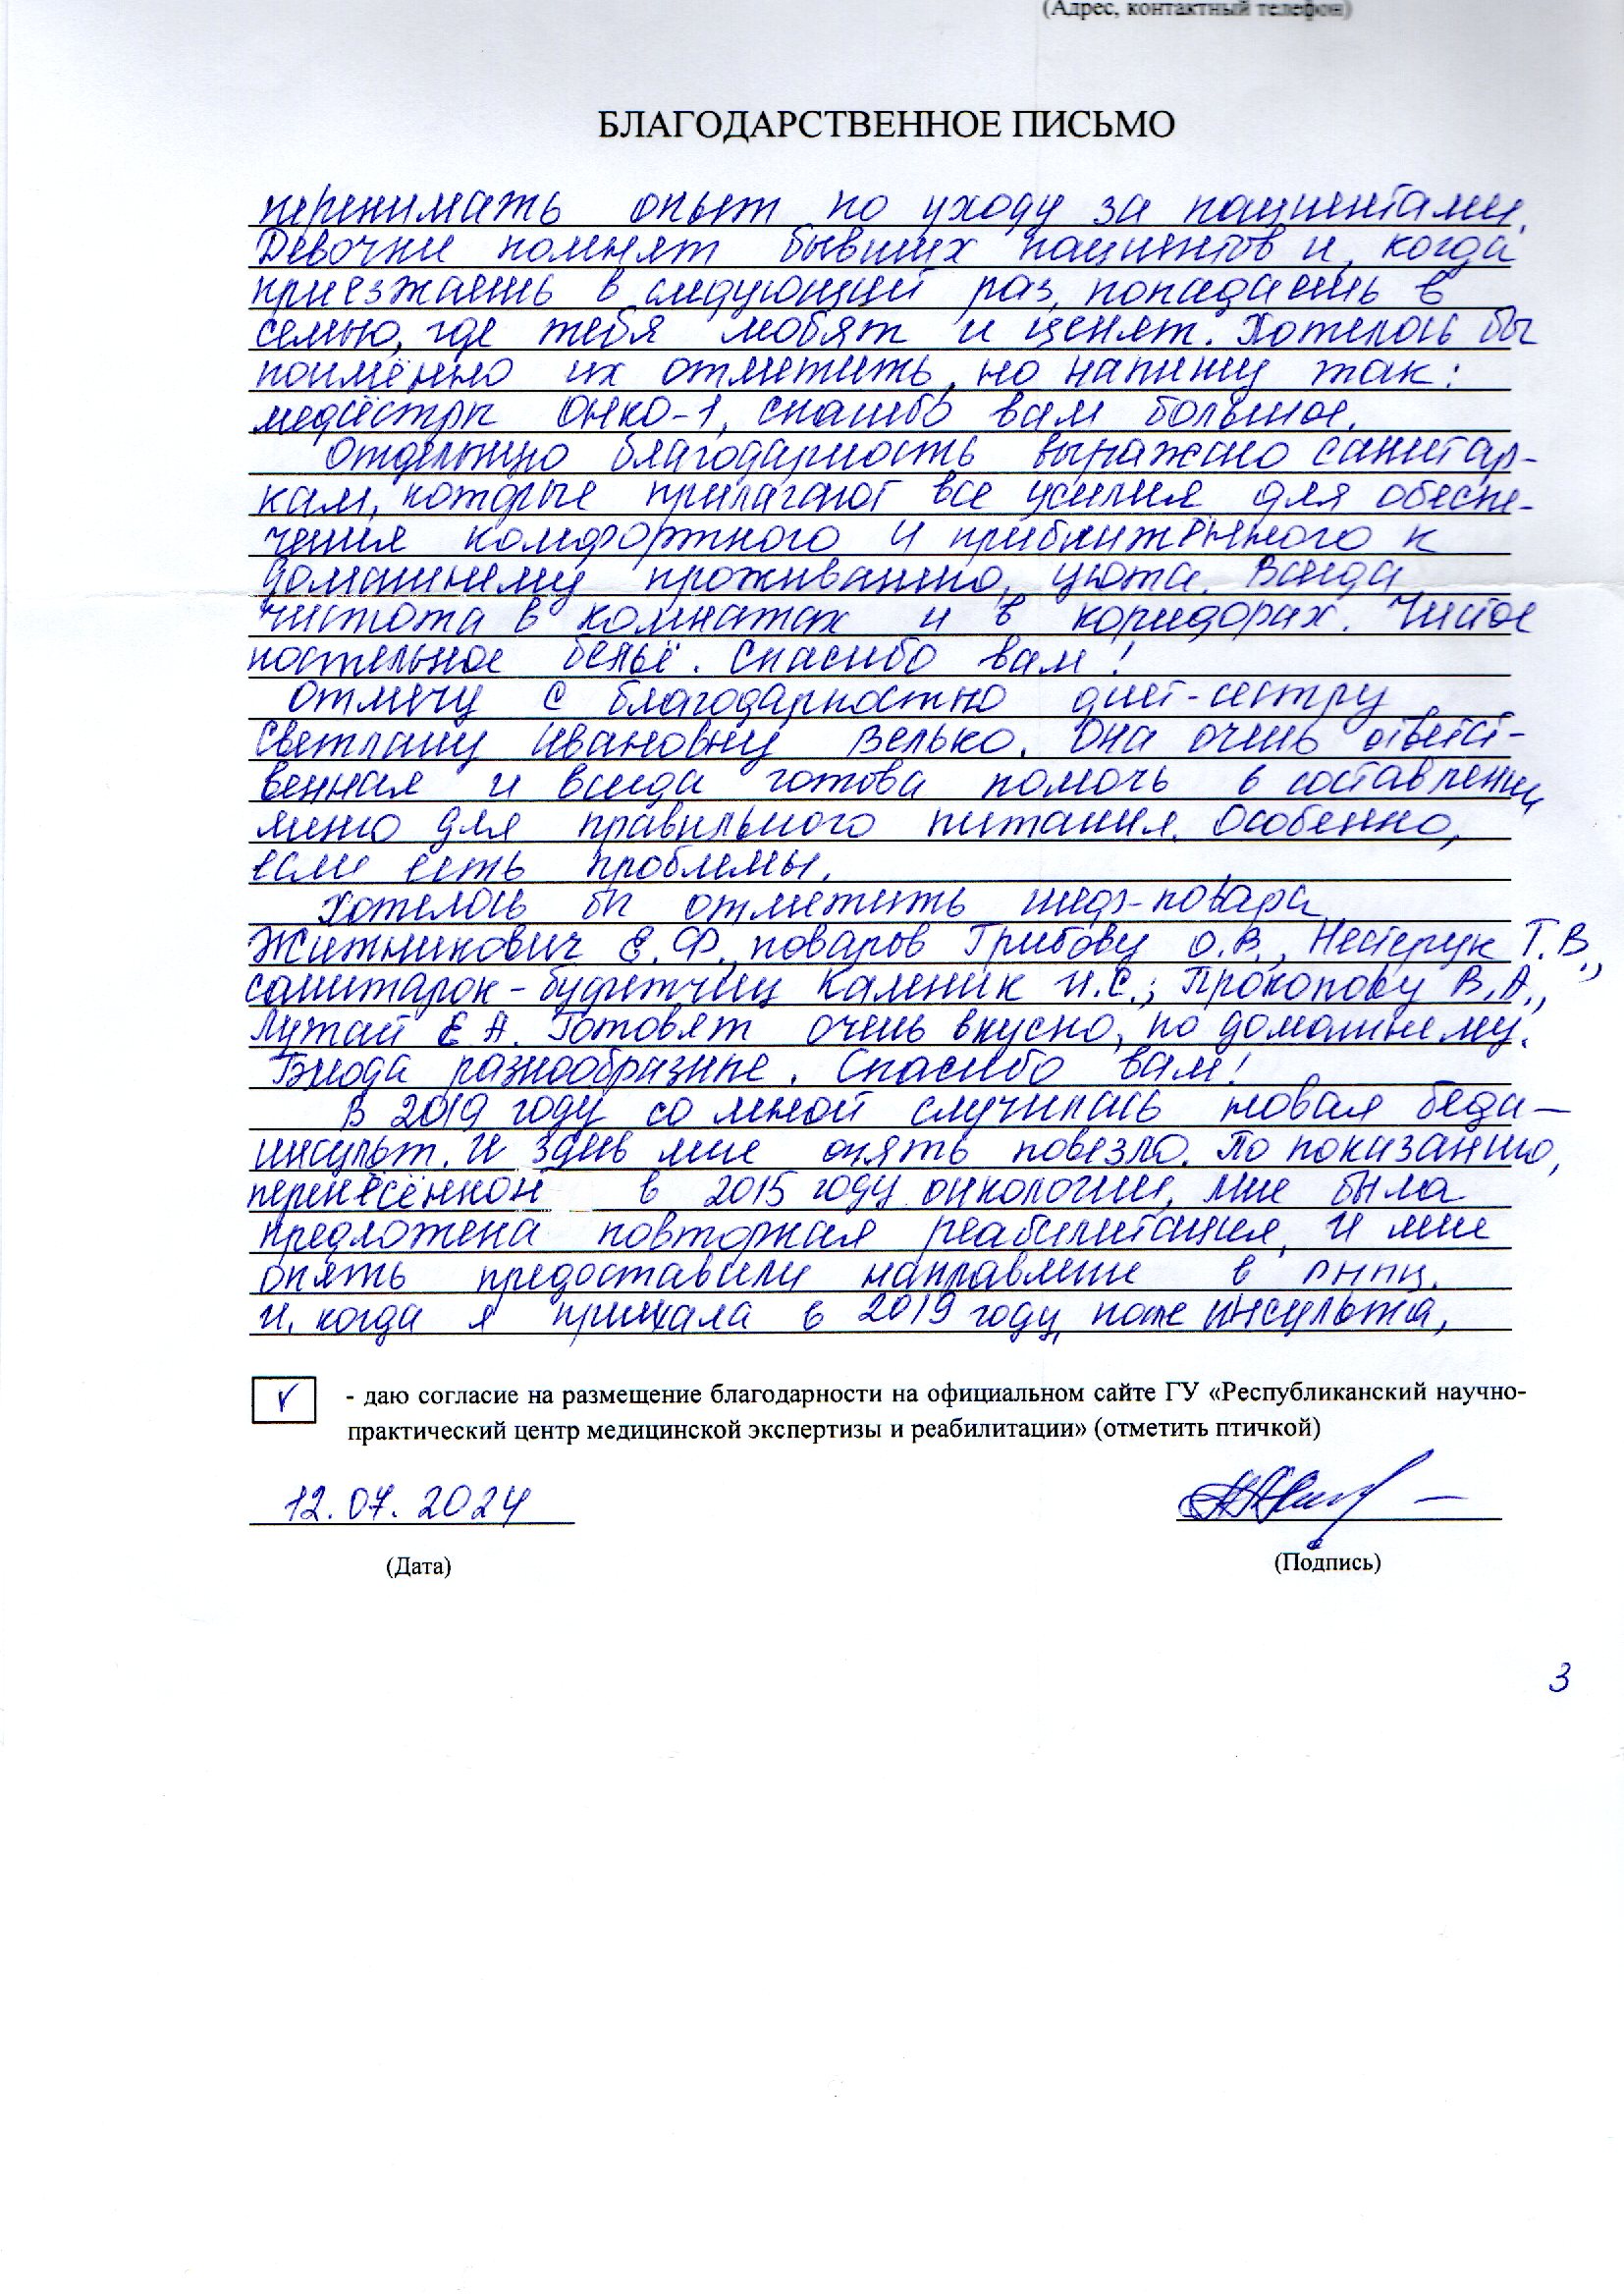 (Адрес, контактный телефон)
БЛАГОДАРСТВЕННОЕ ПИСЬМО
перенимать опыт по уходу за пациентами.
Девочки помнят бывших пациентов и, когда
приезжаешь в следующий раз, попадаешь в
семью, где тебя любят и ценят. Хотелось бы
поимённо их отметить, но напишу так:
медсёстры Онко-1, спасибо вам большое.
Отдельную благодарность выражаю санитар-
кам, которые прилагают все усилия для обеспе-
чения комфортного и приближенного к
домашнему проживанию, уюта. Всегда
чистота в комнатах и в коридорах. Чистое
постельное бельё. Спасибо вам!
Отмечу с благодарностью диет-сестру
Светлану Ивановну Велько. Она очень ответст-
венная и всегда готова помочь в составлении
меню для правильного питания. Особенно,
если есть проблемы.
Хотелось бы отметить шеф-повара
Житникович Е.Ф., поваров Грибову О.В., Нестерук Т.В.,
санитарок-буфетчиц Каменик И.С.; Прокопову В.А.,
Лутай Е А. Готовят очень вкусно, по домашнему.
Блюда разнообразные. Спасибо вам!
В 2019 году со мной случилась новая беда —
инсульт. И здесь мне опять повезло. По показанию,
перенесённой в 2015 году онкологии, мне была
предложена повторная реабилитация, и мне
опять предоставили направление в РНПЦ.
И, когда я приехала в 2019 году, после инсульта,
V - даю согласие на размещение благодарности на официальном сайте ГУ «Республиканский научно-
практический центр медицинской экспертизы и реабилитации» (отметить птичкой)
12.07.2024
(Дата) (Подпись)
3